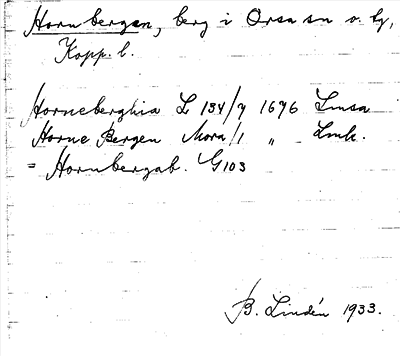 Hornbergen, berg i Orsa sn o. by,
Kopp. l.
Horneberghia L 134/7 1676 Lmsa
Horne Bergen Mora/1 „ Lmk.
= Hornbergab. G103
B. Lindén 1933.